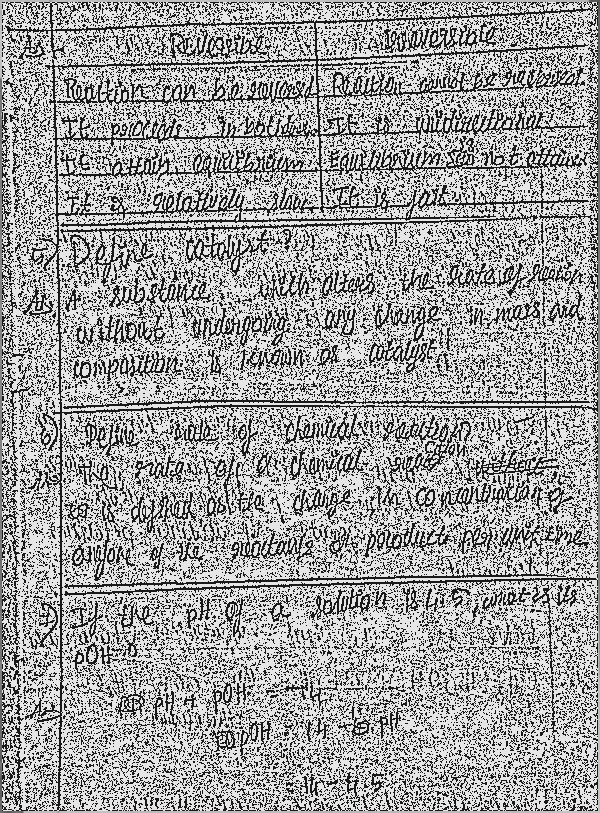 Ans Reversible Irreversible
Reaction can be reversed Reaction cannot be reversed.
It proceeds in both dirn. It is unidirectional
It attain equilibrium Equilibrium is not attained
It is relatively slow It is fast
5) Define catalyst?
Ans A substance with alters the rate of reaction
without undergoing any change in mass and
composition is known as catalyst.
6) Define rate of chemical reaction
Ans The rate of a chemical reaction
is defined as the change in concentration of
anyone of the reactants or products per unit time
7) If the pH of a solution is 4.5, what is its
pOH?
Ans pH + pOH = 14
pOH = 14 - pH
= 14 - 4.5